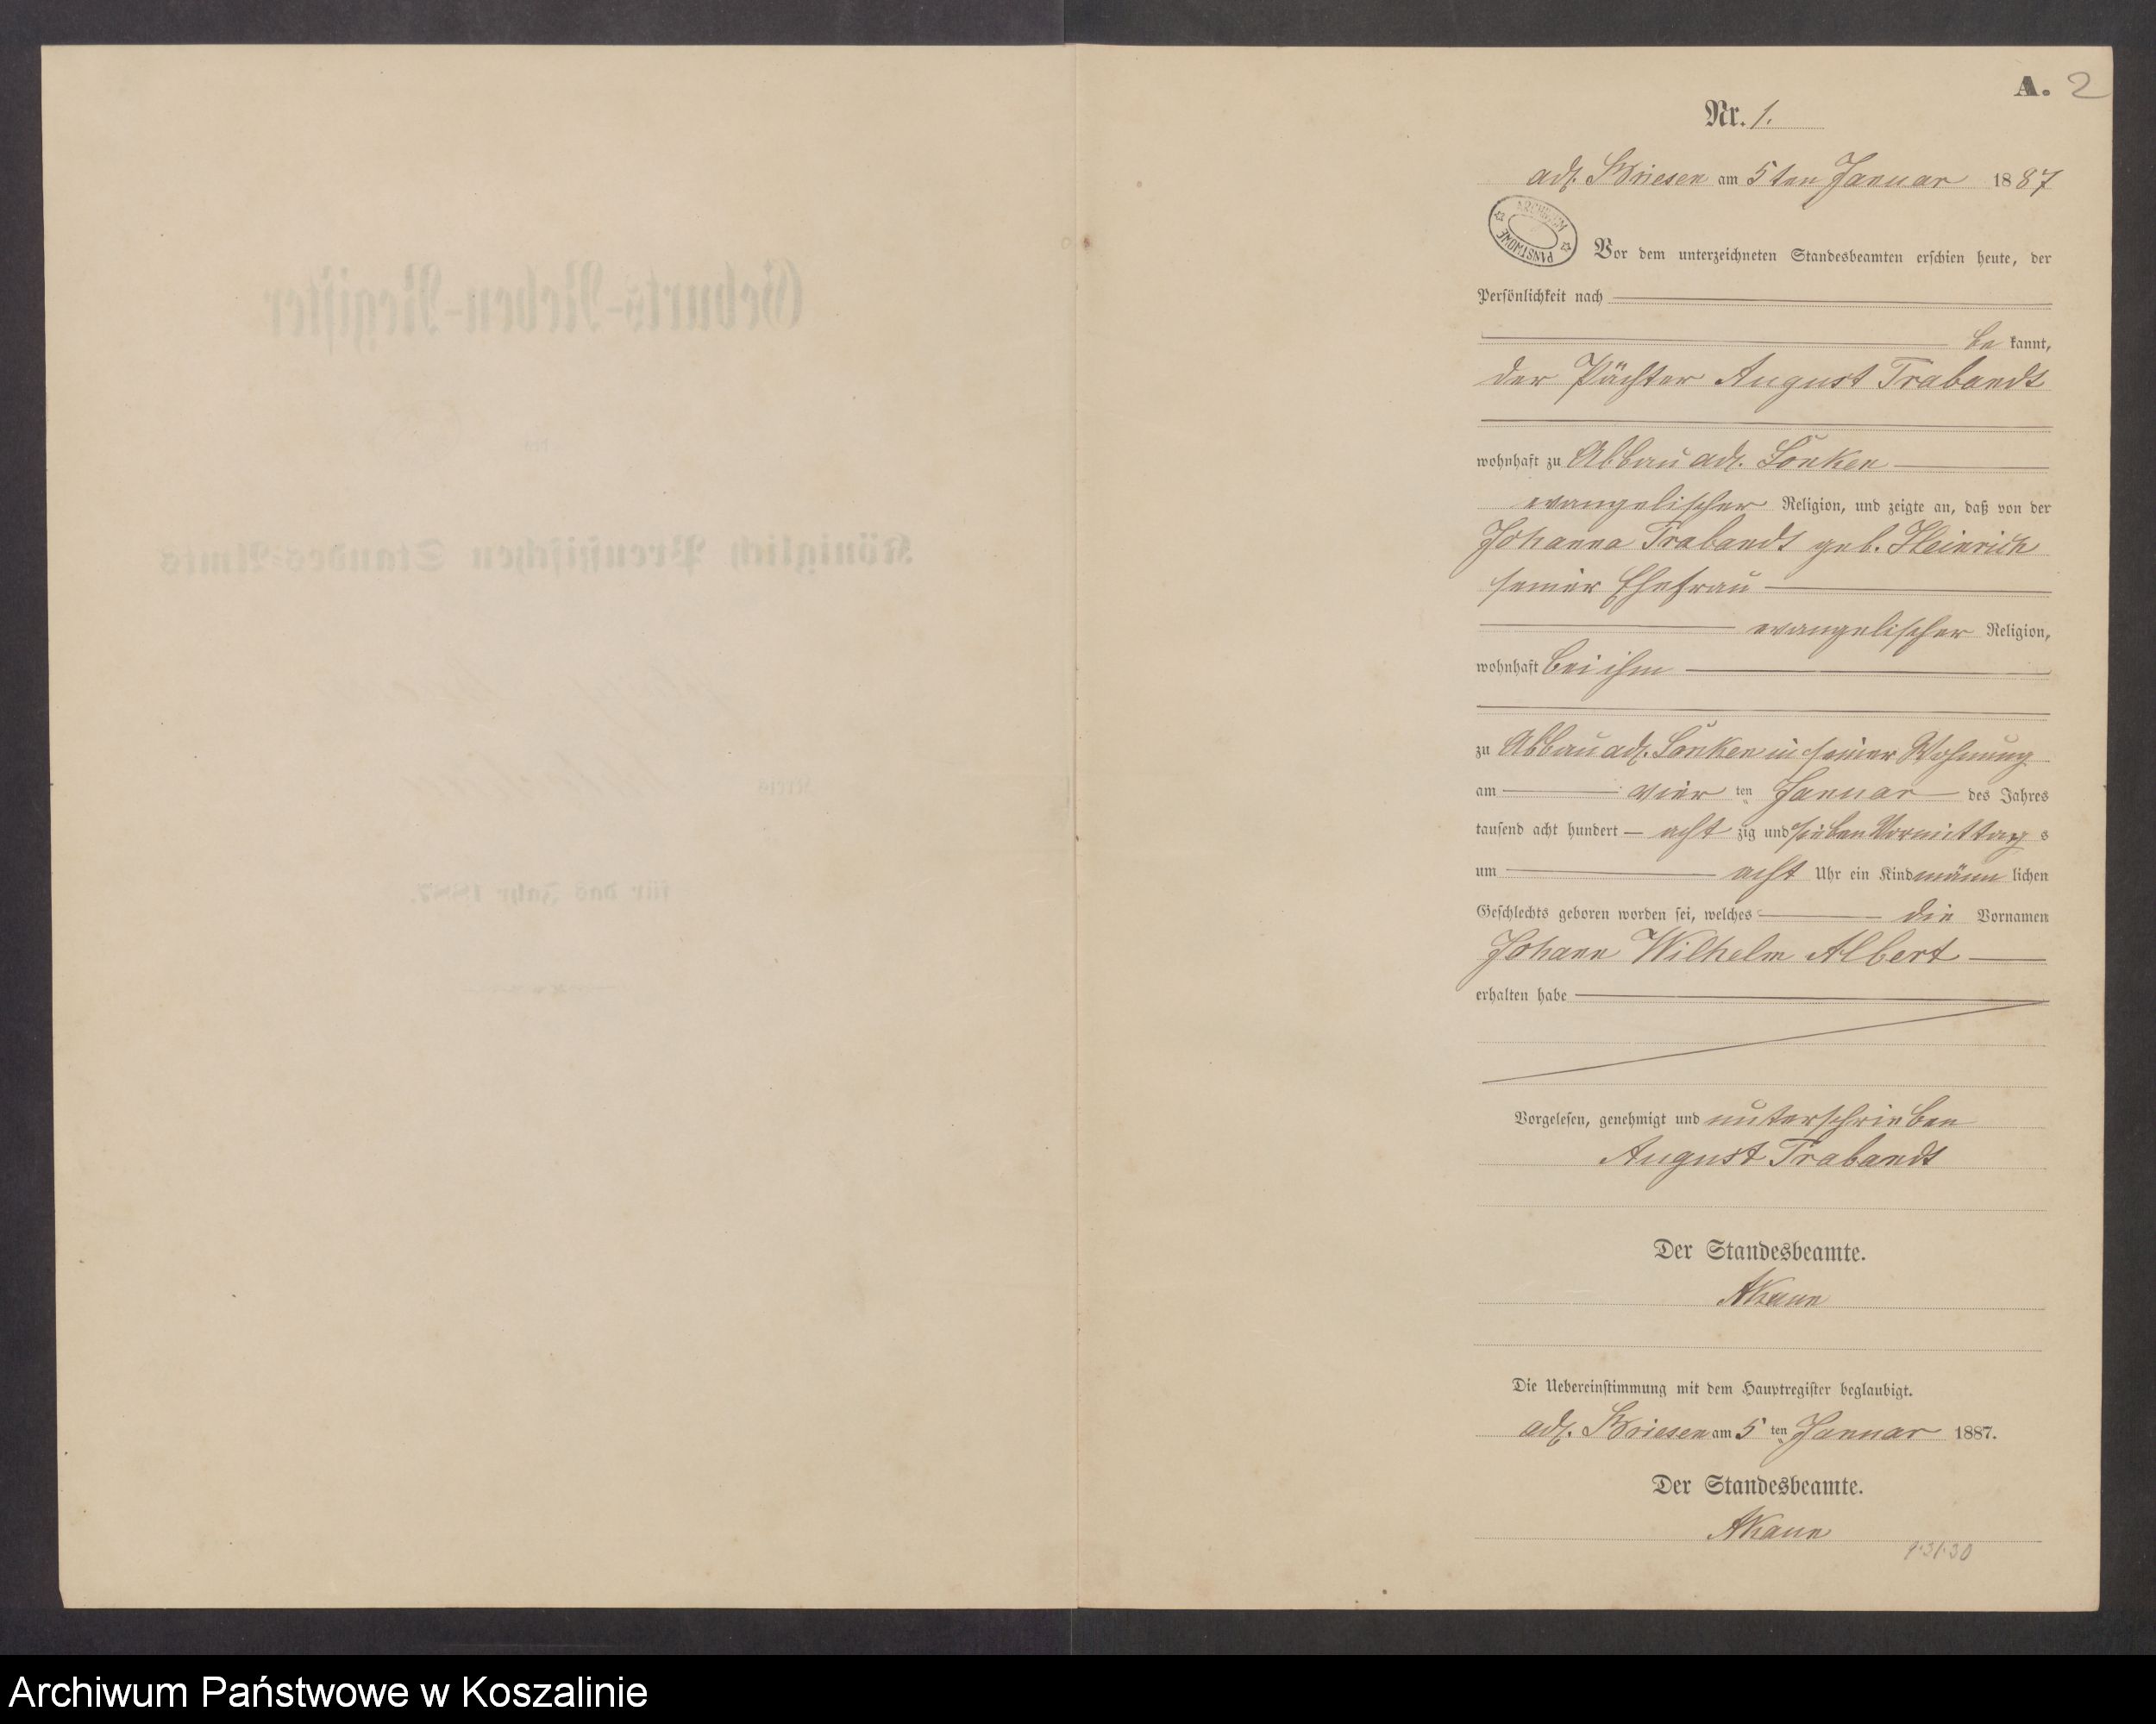 Geburts-Neben-Register
des
Königlich Preußischen Standes-Amts
Kreis
für das Jahr 1887.
A. 2
Nr. 1.
adl. Briesen am 5ten Januar 1887
ARCHIWUM PAŃSTWOWE
Vor dem unterzeichneten Standesbeamten erschien heute, der
Persönlichkeit nach
be kannt,
der Pächter August Trabandt
wohnhaft zu Abbau adl. Lonken
evangelischer Religion, und zeigte an, daß von der
Johanna Trabandt geb. Heinrich
seiner Ehefrau
evangelischer Religion,
wohnhaft bei ihm
zu Abbau adl. Lonken in seiner Wohnung
am vier ten Januar des Jahres
tausend acht hundert acht zig und sieben Vormittag s
um acht Uhr ein Kind männ lichen
Geschlechts geboren worden sei, welches die Vornamen
Johann Wilhelm Albert
erhalten habe
Vorgelesen, genehmigt und unterschrieben
August Trabandt
Der Standesbeamte.
Die Uebereinstimmung mit dem Hauptregister beglaubigt.
adl. Briesen am 5 ten Januar 1887.
Der Standesbeamte.
Archiwum Państwowe w Koszalinie